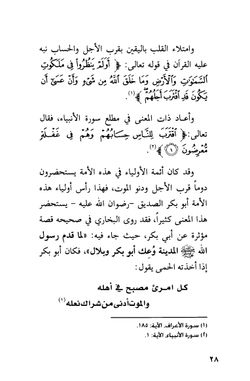 وامتلاء القلب باليقين بقرب الأجل والحساب نبه
عليه القرآن في قوله تعالى: ﴿أَوَلَمْ يَنظُرُوا۟ فِى مَلَكُوتِ
ٱلسَّمَٰوَٰتِ وَٱلْأَرْضِ وَمَا خَلَقَ ٱللَّهُ مِن شَىْءٍ وَأَنْ عَسَىٰٓ أَن
يَكُونَ قَدِ ٱقْتَرَبَ أَجَلُهُمْ﴾(١).
وأعاد ذات المعنى في مطلع سورة الأنبياء، فقال
تعالى: ﴿ٱقْتَرَبَ لِلنَّاسِ حِسَابُهُمْ وَهُمْ فِى غَفْلَةٍ
مُّعْرِضُونَ ١﴾(٢).
وقد كان أئمة الأولياء في هذه الأمة يستحضرون
دوماً قرب الأجل ودنو الموت، فهذا رأس أولياء هذه
الأمة أبو بكر الصديق -رضوان الله عليه- يستحضر
هذا المعنى كثيراً، فقد روى البخاري في صحيحه قصة
مؤثرة عن أبي بكر، حيث جاء فيه: «لما قدم رسول
الله ﷺ المدينة وُعك أبو بكر وبلال»، فكان أبو بكر
إذا أخذته الحمى يقول:
كل امرئ مصبح في أهله
والموت أدنى من شراك نعله(١)
(١) سورة الأعراف، الآية: ١٨٥.
(٢) سورة الأنبياء، الآية: ١.
٢٨